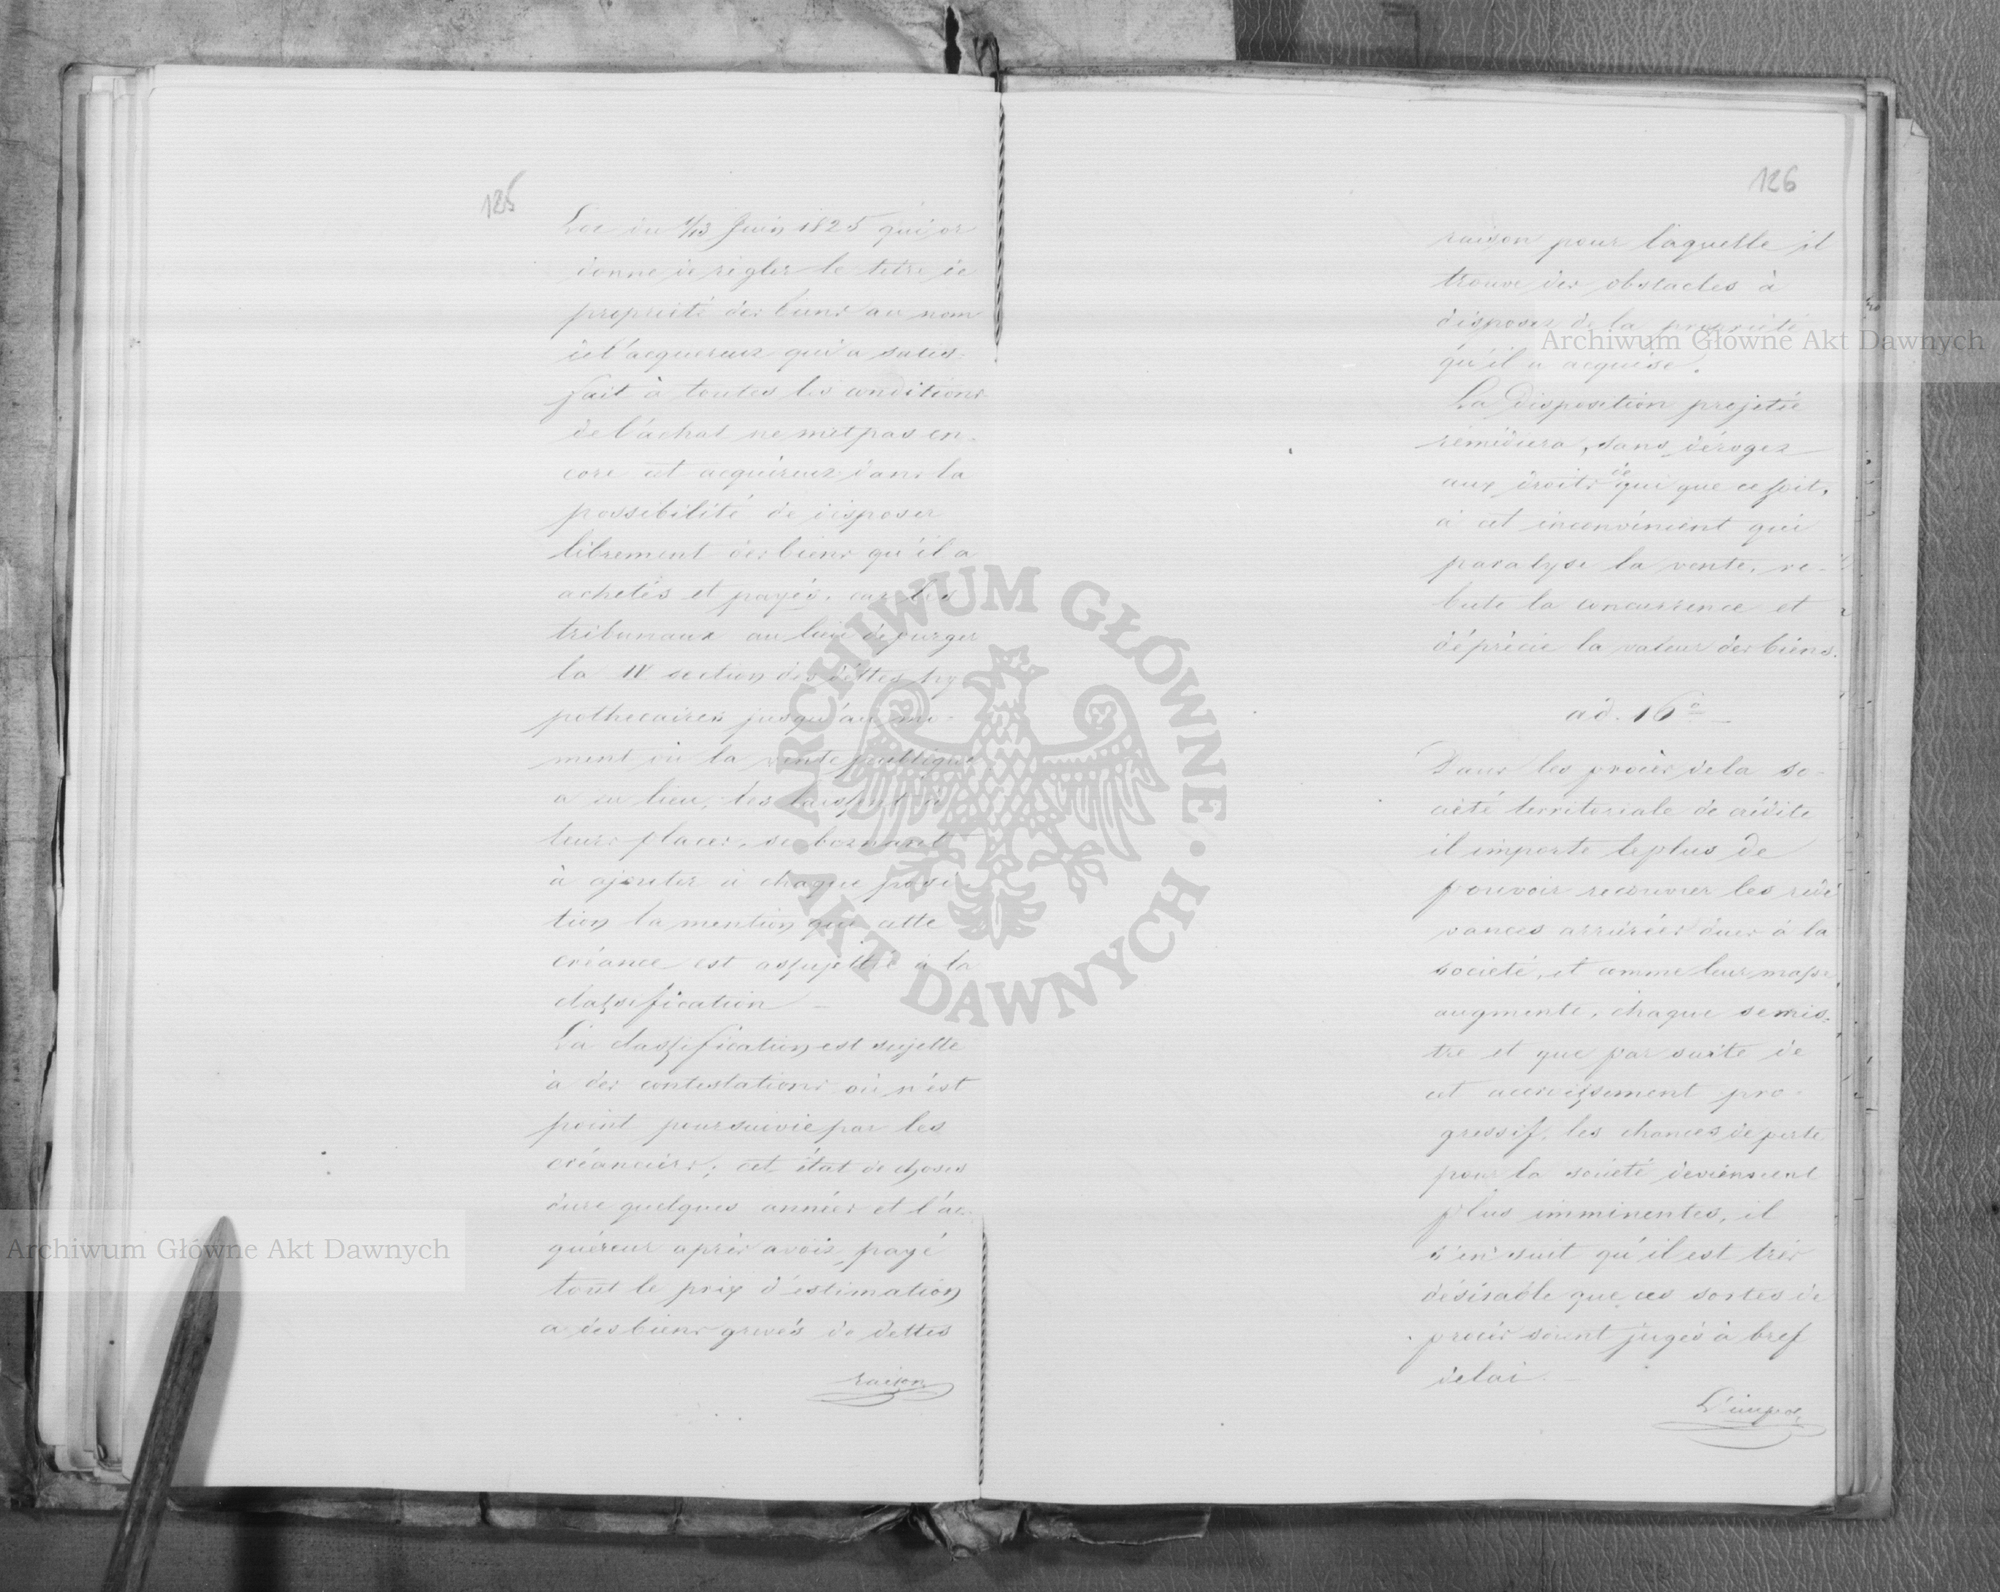 125
Loi du 1/13 Juin 1825 qui or
donne de régler le titre de
propriété des biens au nom
de l'acquereur qui a satis-
fait à toutes les conditions
de l'achat ne met pas en-
core cet acquéreur dans la
possibilité de disposer
librement des biens qu'il a
achetés et payés, car les
tribunaux au lieu de purger
la IV section des dettes hy
pothecaires jusqu'au mo-
ment où la vente publique
a eu lieu, les laissent à
leurs places, se bornant
à ajouter à chaque posi
tion la mention que cette
créance est assujettie à la
classification –
La classification est sujette
à des contestations où n'est
point poursuivie par les
créanciers; cet état de choses
dure quelques années et l'ac
quéreur après avoir payé
tout le prix d'estimation
a des biens grevés de dettes
raison
126
raison pour laquelle il
trouve des obstacles à
disposer de la propriété
qu'il a acquise.
La disposition projetée
rémédiera, sans déroger
aux droits de qui que ce soit,
à cet inconvénient qui
paralyse la vente, re-
bute la concurrence et
déprécie la valeur des biens.
ad. 16°
Dans les procès de la so-
ciété territoriale de crédite
il importe le plus de
pouvoir recouvrer les rede
vances arriérées dues à la
société, et comme leur masse
augmente, chaque semes-
tre et que par suite de
cet accroissement pro-
gressif, les chances de perte
pour la société deviennent
plus imminentes, il
s'en suit qu'il est très
désirable que ces sortes de
procès soient jugés à bref
délai.
L'impor
Archiwum Główne Akt Dawnych
Archiwum Główne Akt Dawnych
· ARCHIWUM GŁÓWNE · AKT DAWNYCH